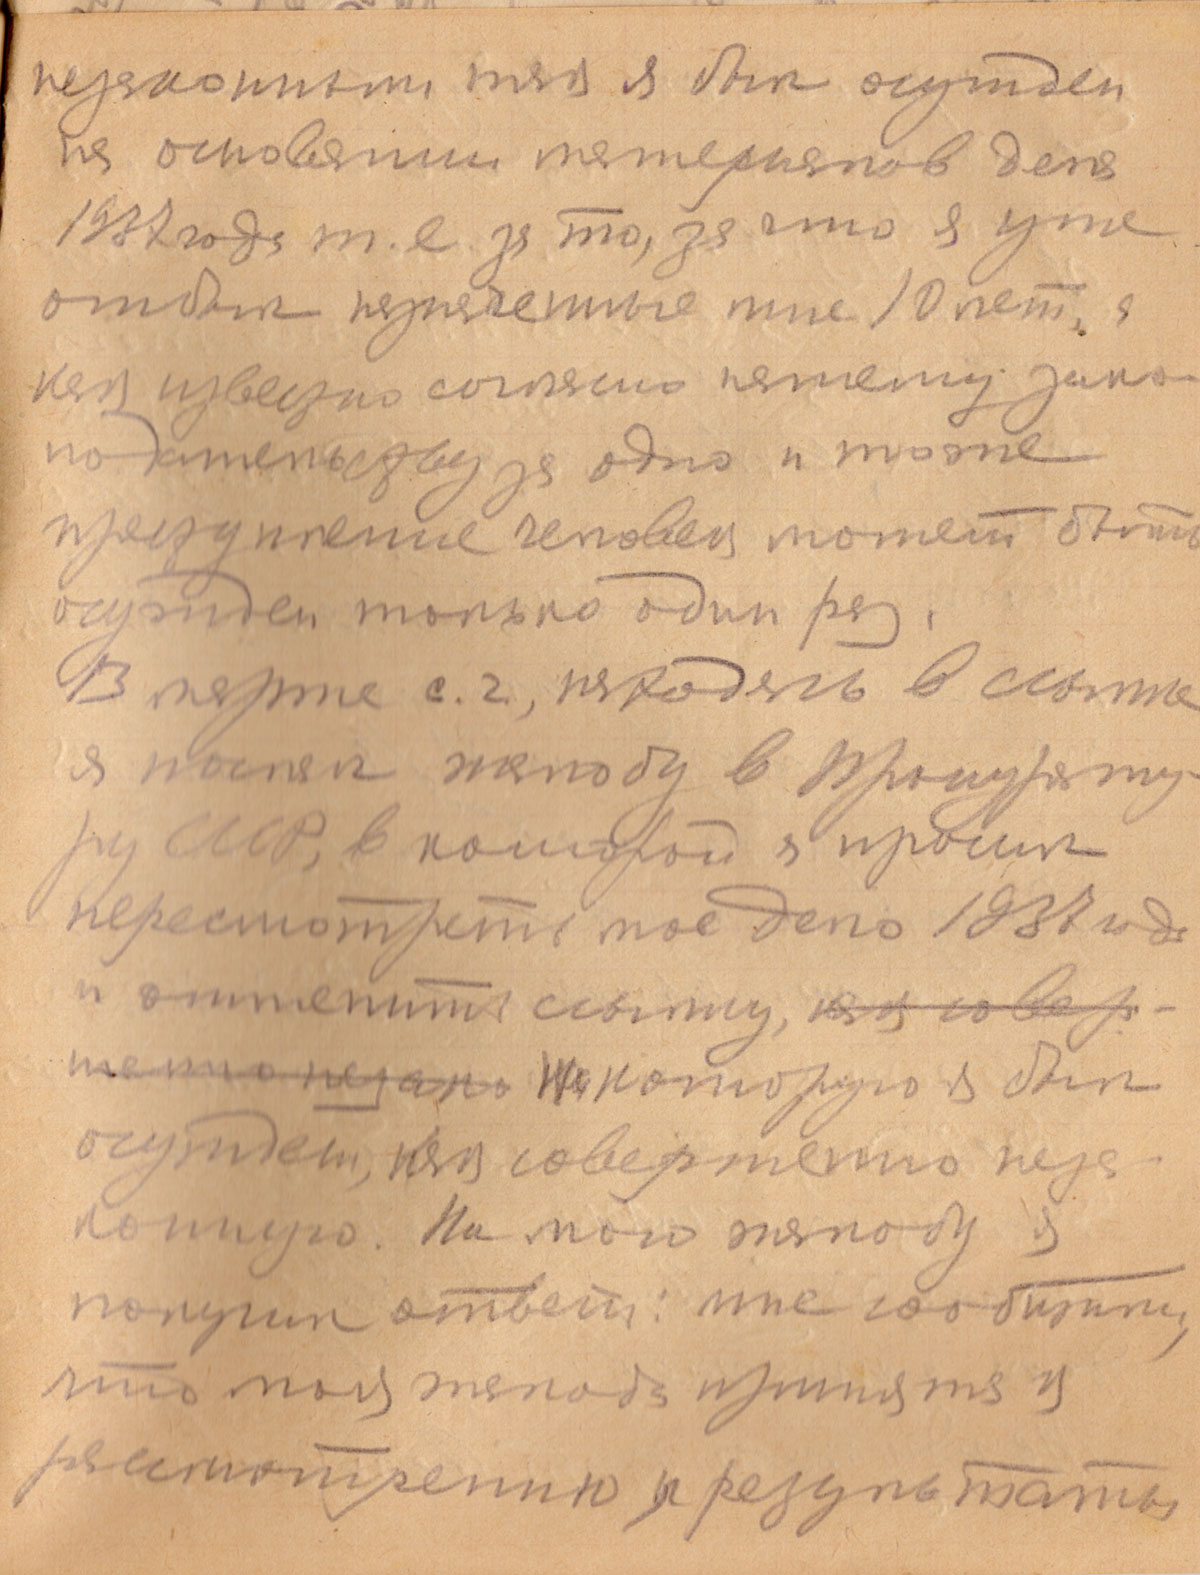 незаконными так я был осужден
на основании материалов дела
1937 года т. е. за то, за что я уже
отбыл назначенные мне 10 лет, а
как известно согласно нашему зако-
нодательству за одно и тоже
преступление человек может быть
осужден только один раз.
В марте с. г., находясь в ссылке
я послал жалобу в Прокурату-
ру СССР, в которой я просил
пересмотреть мое дело 1937 года
и отменить ссылку, как совер-
шенно незако на которую я был
осужден, как совершенно неза-
конную. На мою жалобу я
получил ответ: мне сообщили,
что моя жалоба принята к
рассмотрению и результаты